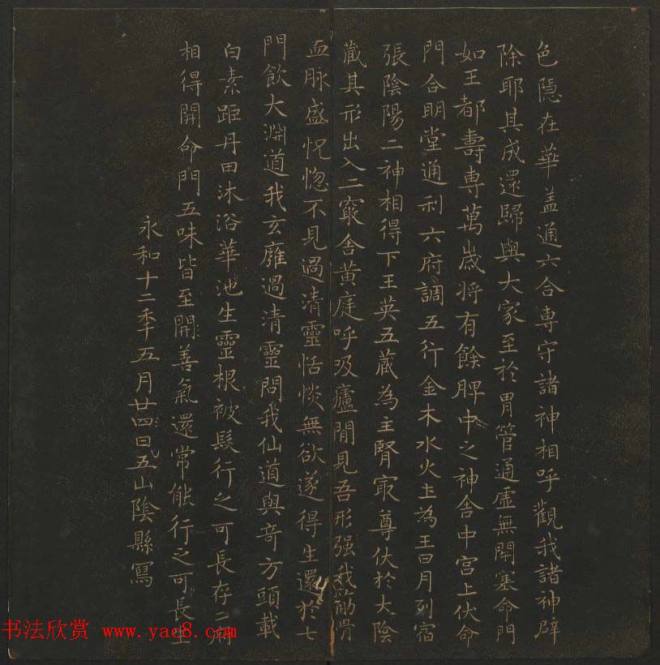 色隱在華盖通六合專守諸神相呼觀我諸神辟
除耶其成還歸與大家至於胃管通虛無閉塞命門
如王都壽專萬歲将有餘脾中之神舍中宫上伏命
門合明堂通利六府調五行金木水火土為王日月列宿
張陰陽二神相得下王英五蔵為主腎冣尊伏於大陰
蔵其形出入二竅舍黄庭呼吸廬閒見吾形强我筋骨
血脉盛怳惚不見過清靈恬惔無欲遂得生還於七
門飲大淵道我玄廱過清靈問我仙道與竒方頭載
白素距丹田沐浴華池生靈根被髮行之可長存二府
相得開命門五味皆至開善氣還常能行之可長生
永和十二年五月廿四日五山陰縣寫
书法欣赏 www.yac8.com